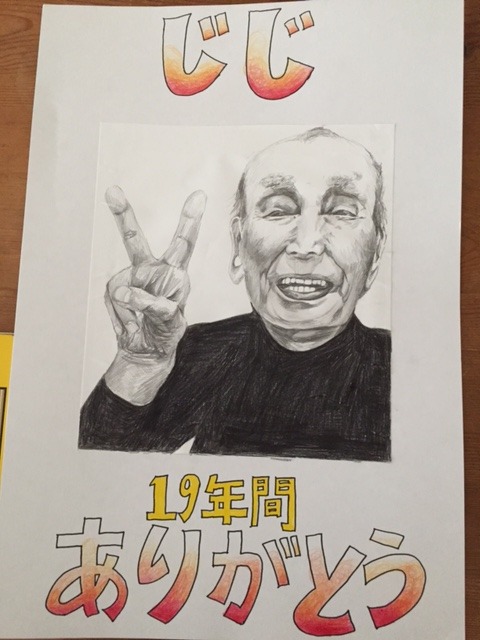 じじ
19年間
ありがとう